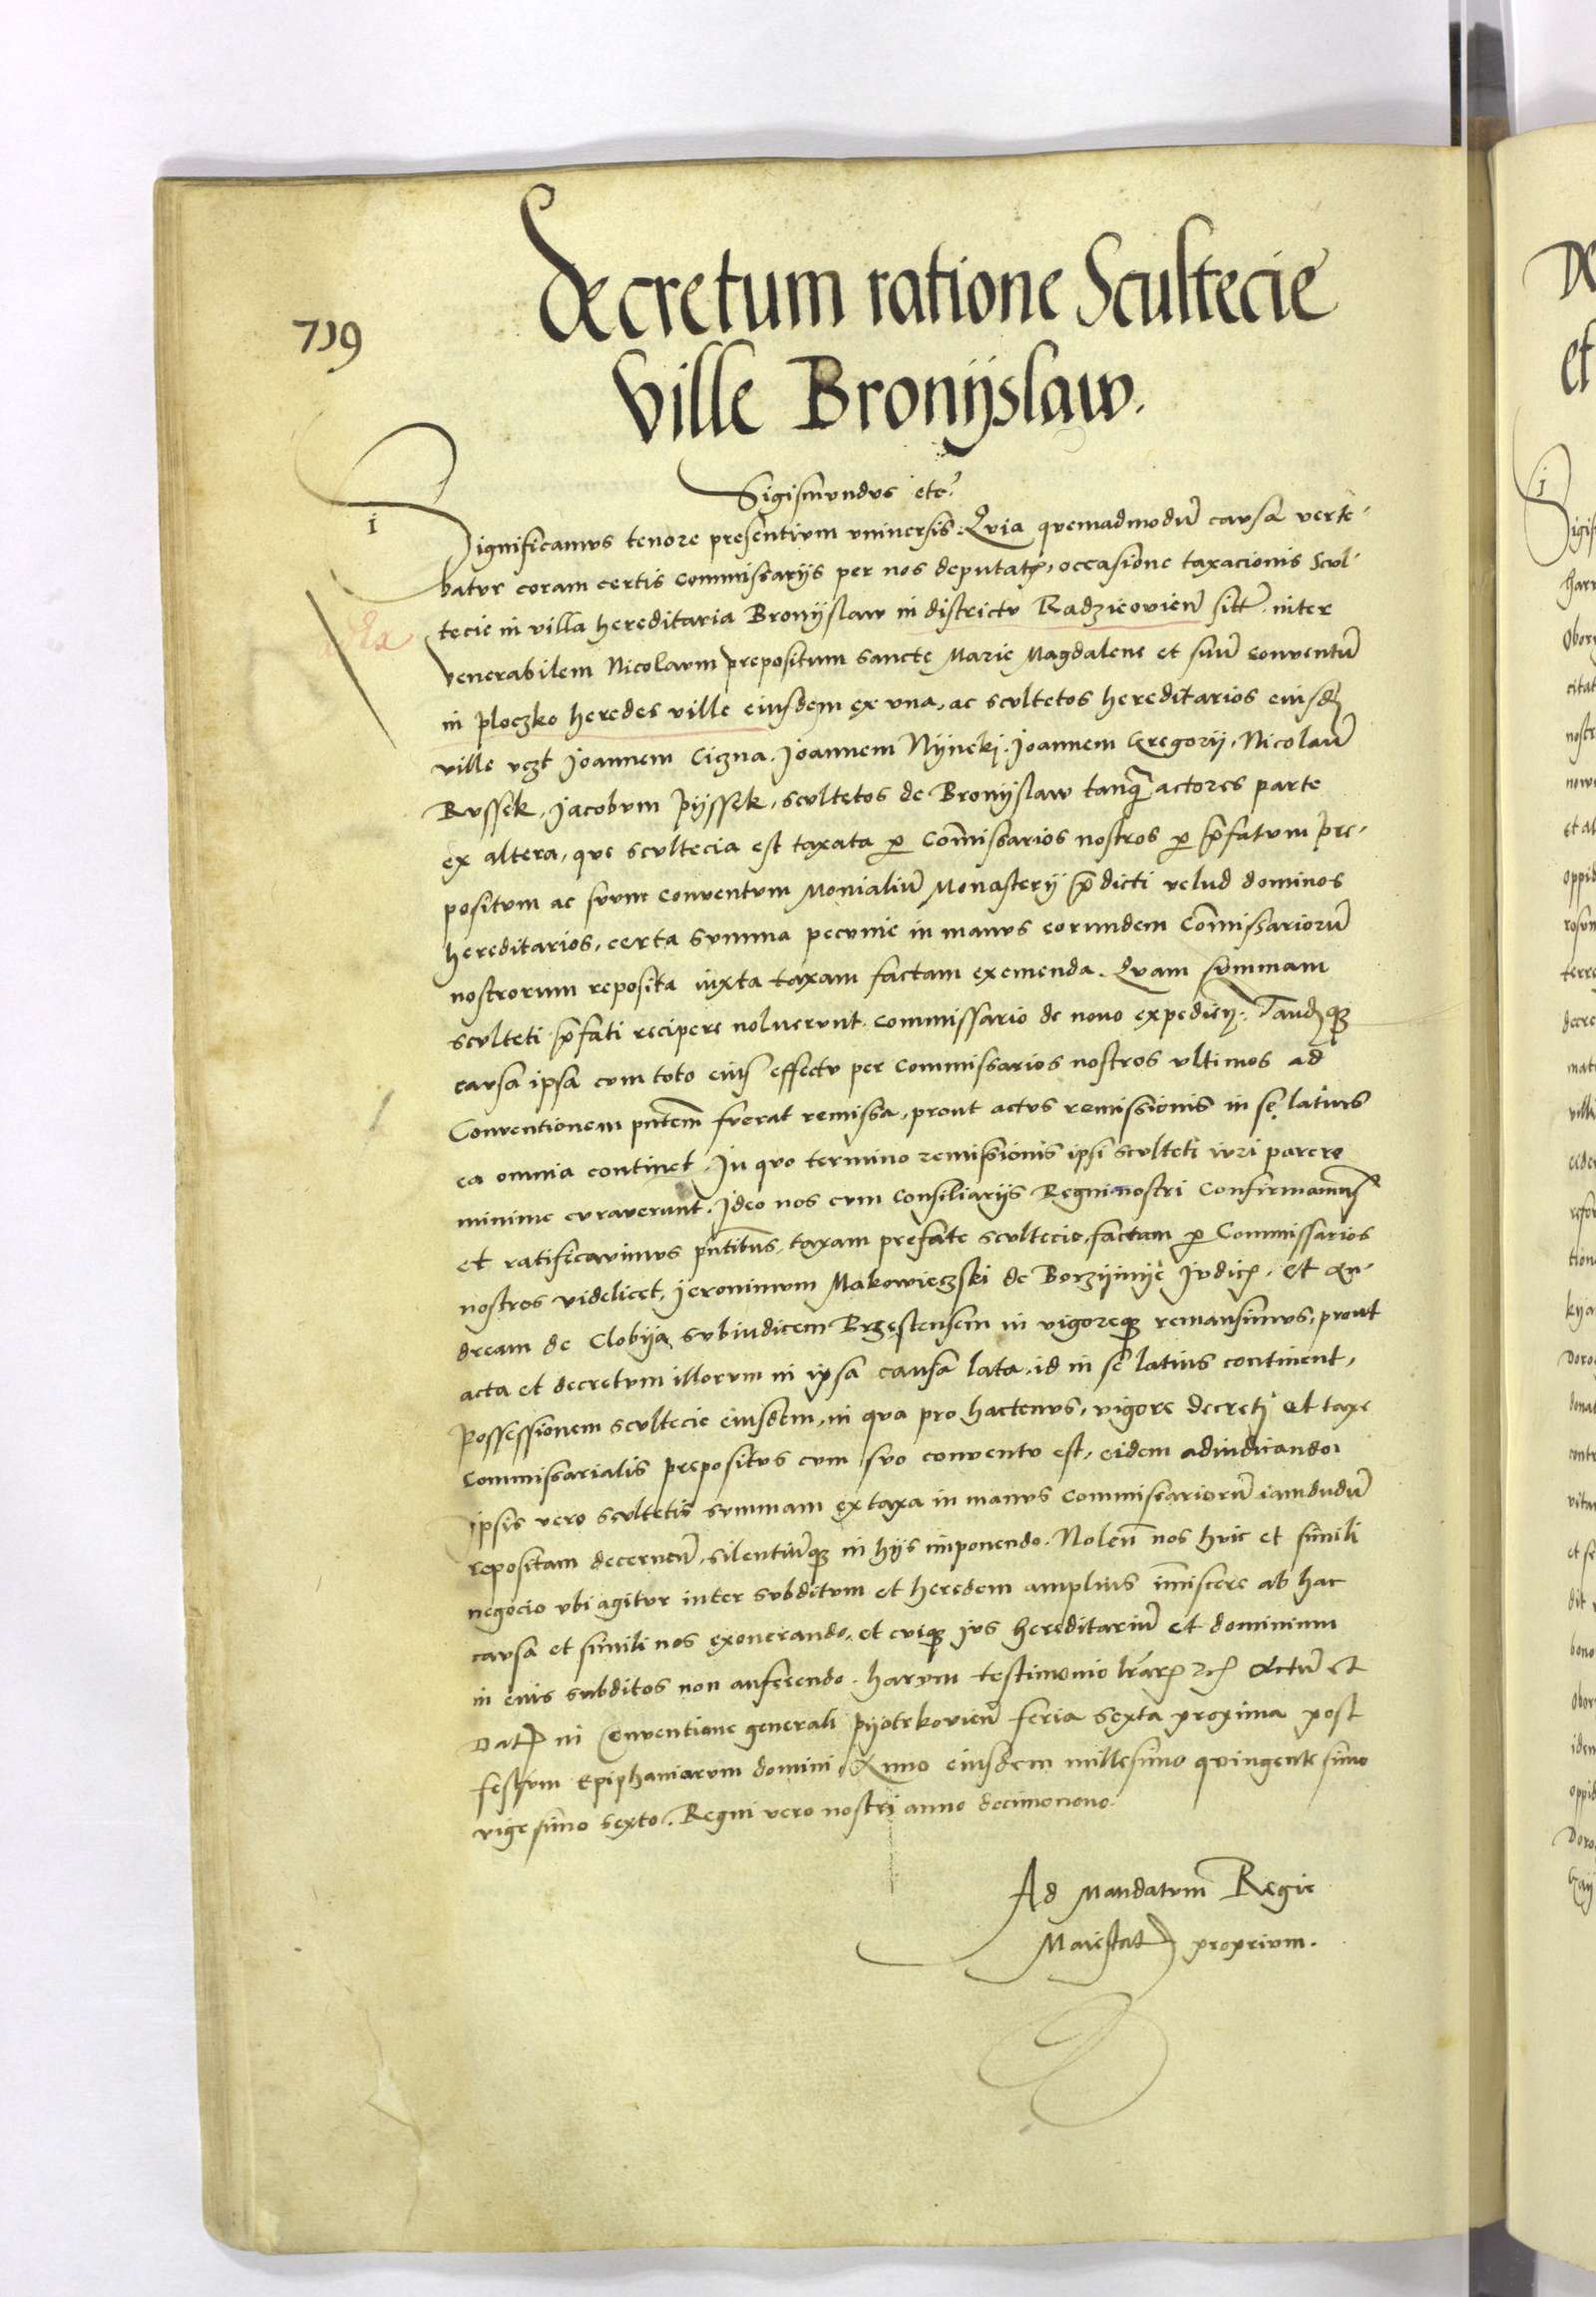 Decretum ratione Scultecie
719
Ville Bronÿslaw.
Sigismundus etc.
i
Significamus tenore presentium vniuersis. Quia quemadmodũ causa verte-
batur coram certis commissarijs per nos deputatis, occasione taxacionis Scul-
tecie in villa hereditaria Bronÿslaw in districtu Radzieouien̄ sitt̄. inter
venerabilem Nicolaum prepositum sancte Marie Magdalene et suũ conuentũ
in ploczko heredes ville eiusdem ex vna, ac scultetos hereditarios eiusd̄
ville vczt Joannem Ciczna. Joannem Nÿnckj. Joannem Gregorij, Nicolaũ
Russek, Jacobum Pÿssek, scultetos de Bronÿslaw tanq̄ actores parte
ex altera, que scultecia est taxata p Com̄issarios nostros p p̄fatum Pre-
positum ac suum conuentum Monialiũ Monasterij p̄dicti velud dominos
hereditarios, certa summa pecunie in manus eorundem Com̄issariorũ
nostrorum reposita iuxta taxam factam exemenda. Quam summam
sculteti p̄fati recipere noluerunt. commissario de nouo expedien̄. Tandẽq
causa ipsa cum toto eius effectu per Commissarios nostros vltimos ad
Conuentionem pn̄tem fuerat remissa, prout actus remissionis in se latius
ea omnia continet. In quo termino remissionis ipsi sculteti iuri parere
minime curauerunt. Ideo nos cum Consiliarijs Regni nostri Confirmauim̄s
et ratificauimus pn̄tibus, taxam prefate scultecie, factam p Commissarios
nostros videlicet, Jeronimum Makowieczski de Borzÿmÿe Judicẽ, et An-
dream de Clobija subiudicem Brzestensem in vigoreq remansimus, prout
acta et decretum illorum in ipsa causa lata, id in se latius continent,
Possessionem scultecie eiusdem, in qua pro hactenus, vigore decreti et taxe
Commissarialis prepositus cum suo conuentu est, eidem adiudicando,
ipsis vero scultetis summam ex taxa in manus commissariorũ iamdudũ
repositam decernen̄, silentiũq in hijs imponendo. Nolen̄ nos huic et simili
negocio vbi agitur inter subditum et heredem amplius im̄iscere ab hac
causa et simili nos exonerando, et cuiq ius hereditariũ et dominium
in euis subditos non auferendo. Harum testimonio lr̄arz rc̄ Actũ et
Dat in Conuentione generali Pÿotrkouien̄ feria sexta proxima post
festum Epiphaniarum domini, Anno eiusdem millesimo quingentesimo
vigesimo sexto. Regni vero nostri anno decimonono.
Ad Mandatum Regie
Maiestat proprium.